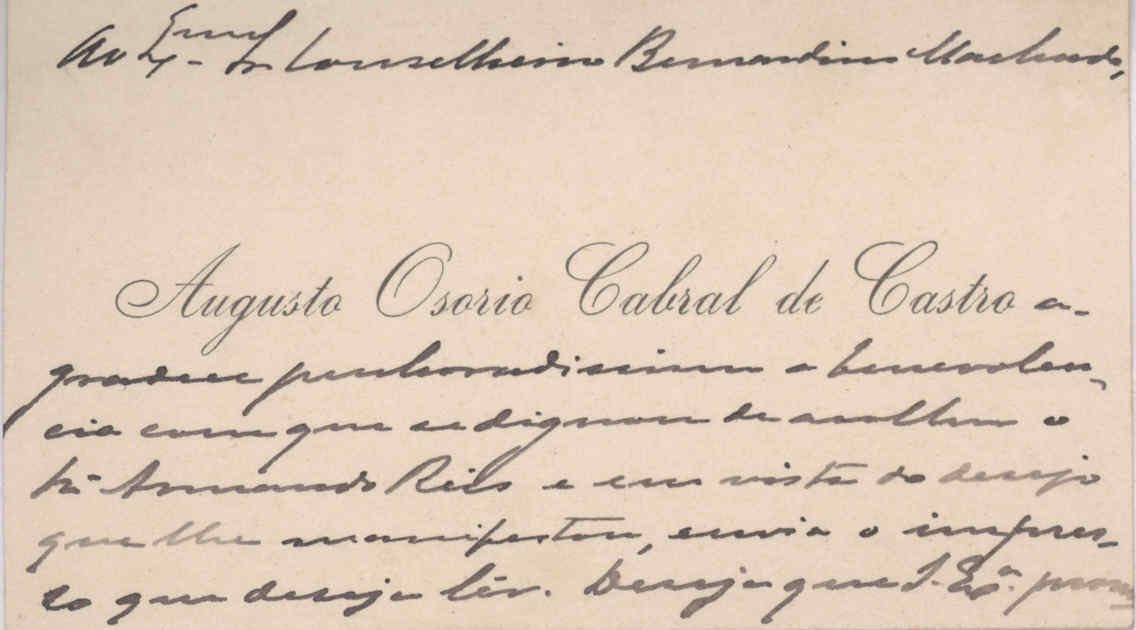 Ao Exmº Sr Conselheiro Bernardino Machado,
Augusto Osorio Cabral de Castro a-
gradece penhoradissimo a benevolen-
cia com que se dignou de acolher o
Armando Reis e em vista do desejo
que lhe manifestou, envia o impres-
so que deseja lêr. Deseja que S. Exª.